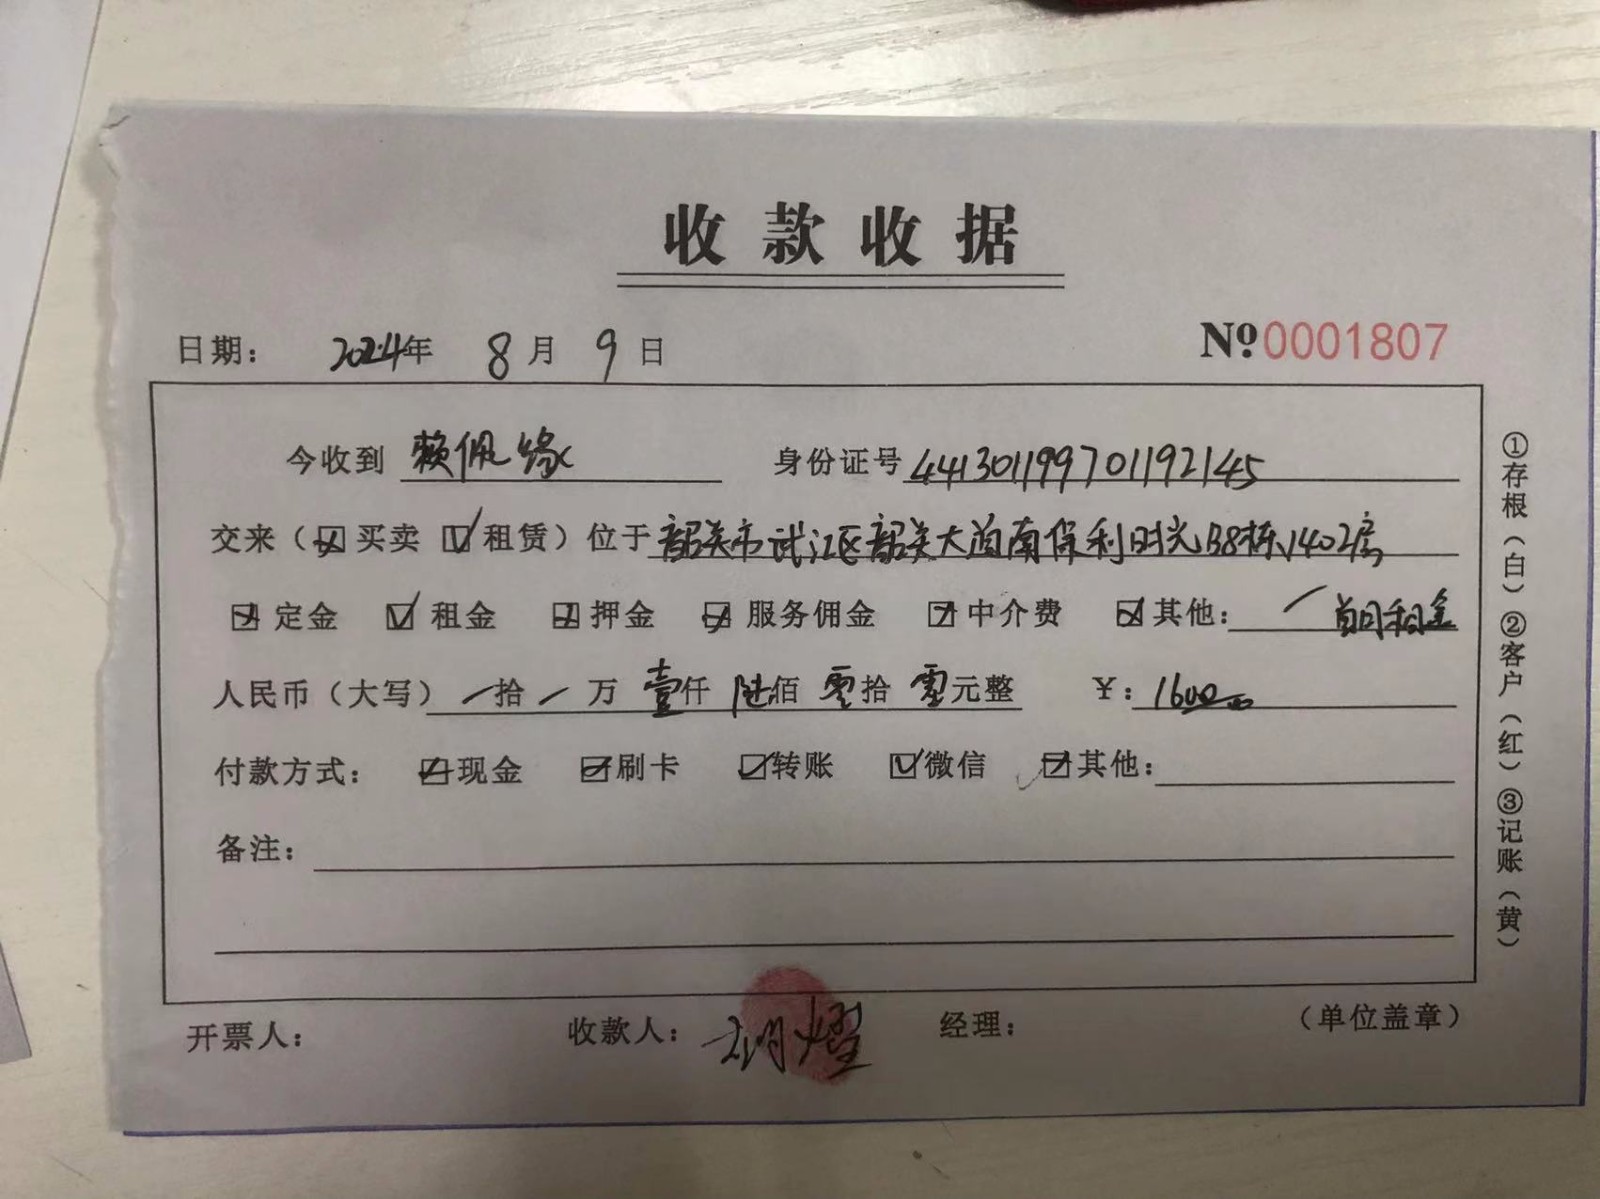 收款收据
日期： 2024年 8月 9日 №0001807
今收到 赖佩缘 身份证号 441301199701192145
交来（☒买卖 ☑租赁）位于 韶关市武江区韶关大道南保利时光B8栋1402房
☒定金 ☑租金 ☒押金 ☒服务佣金 ☒中介费 ☒其他： / 首月租金
人民币（大写） / 拾 / 万 壹仟 陆佰 零拾 零元整 ¥：1600
付款方式： ☒现金 ☒刷卡 ☒转账 ☑微信 ☒其他：
备注：
开票人： 收款人： 经理： （单位盖章）
①存根（白）②客户（红）③记账（黄）